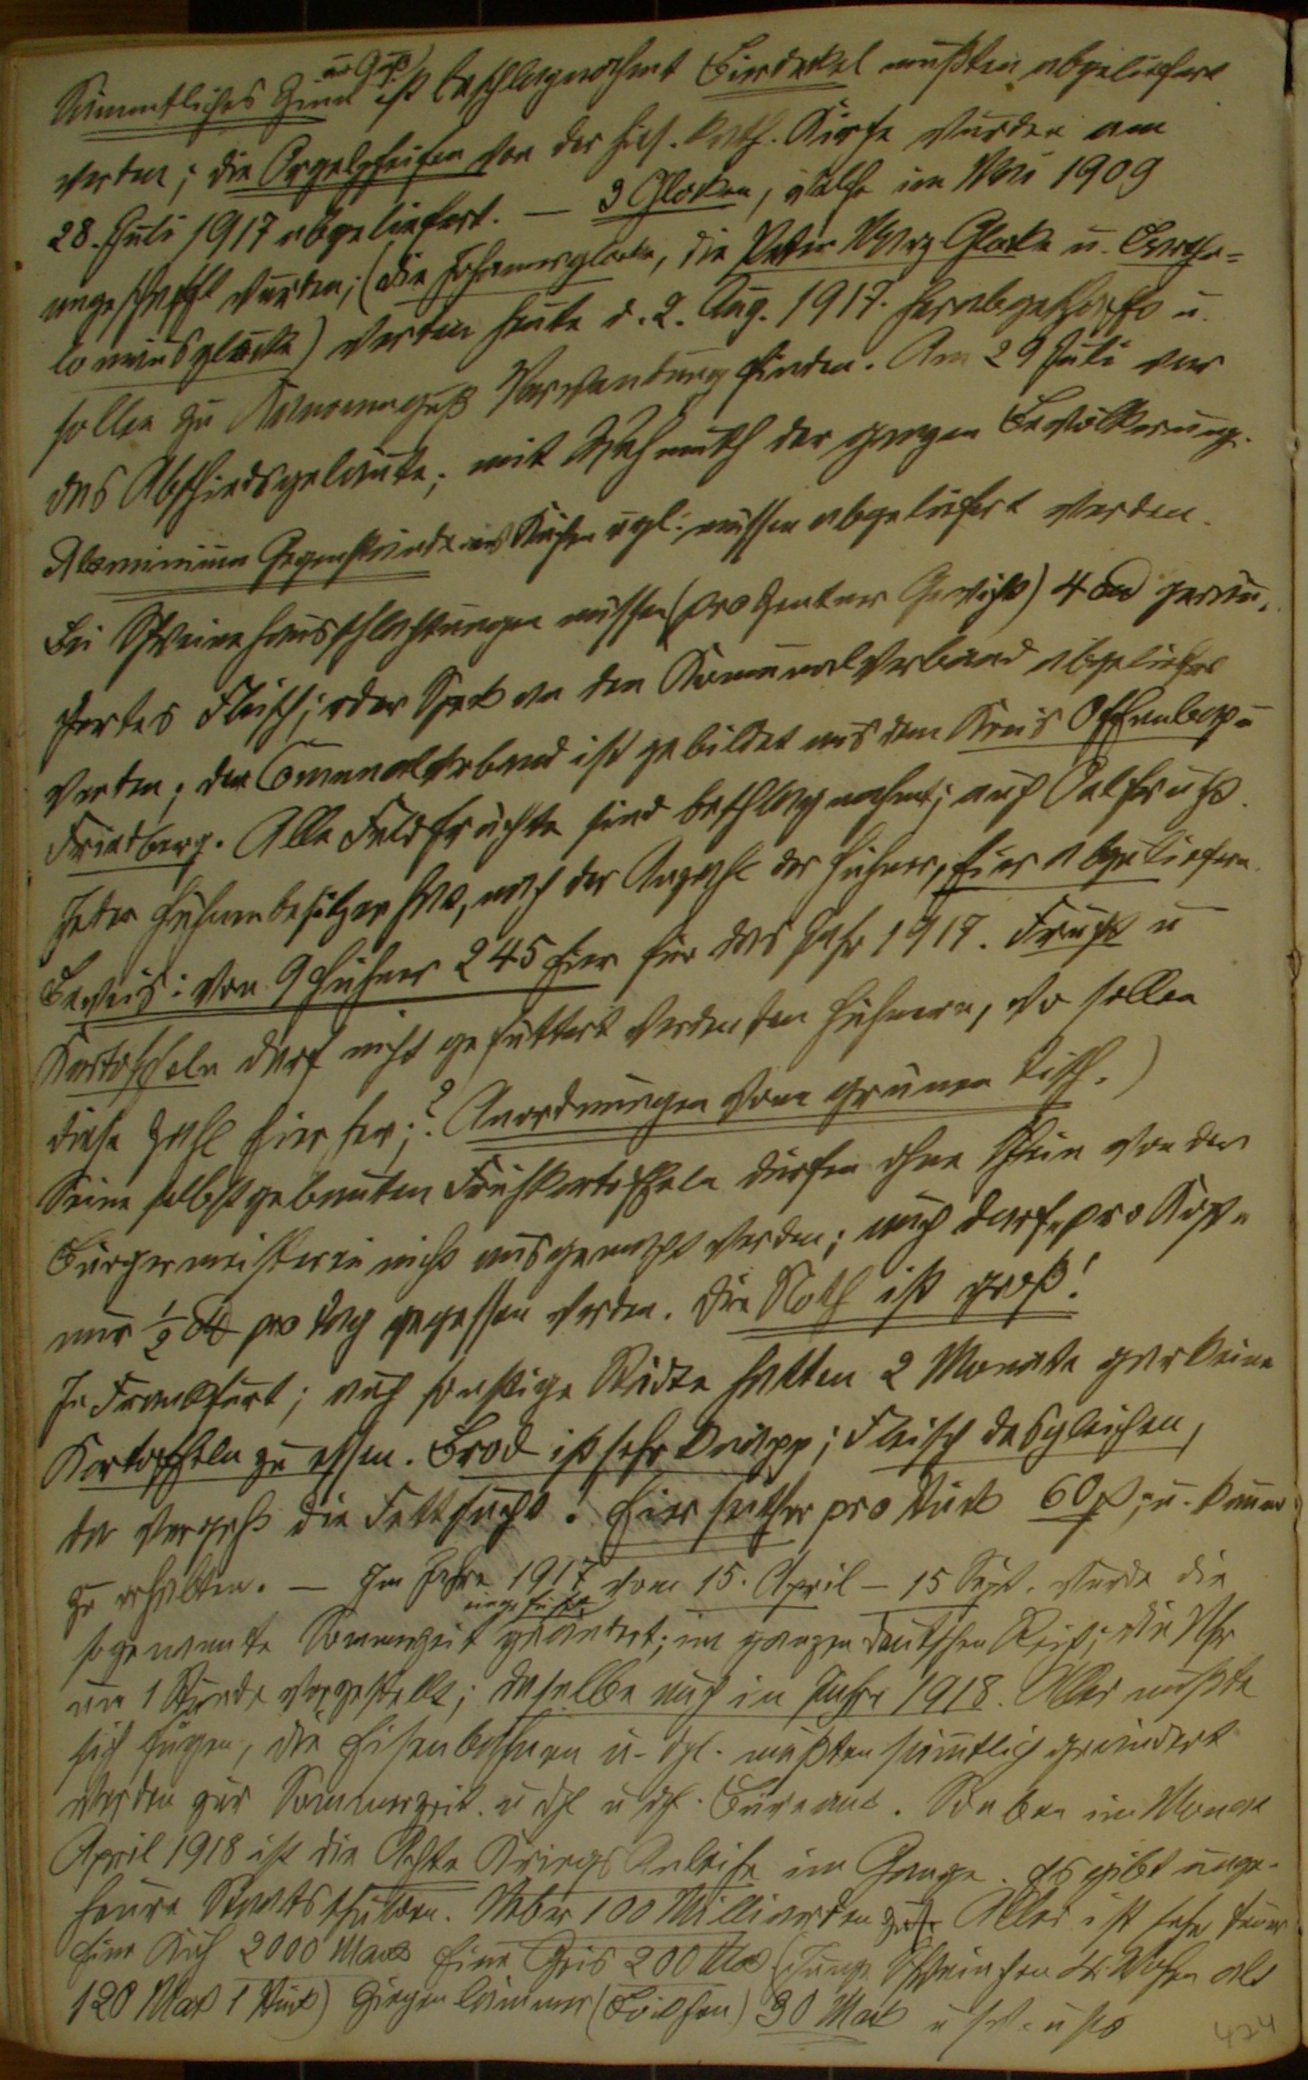 aus Guß
Sämmtliches Zinn ist beschlagnahmt Bierdekel mußten abgeliefert
werden; die Orgelpfeifen von der hies. kath. Kirche wurden am
28. Juli 1917 abgeliefert. — 3 Gloken, welche im Mai 1909
angeschafft wurden; (die Johannesglocke, die Peter Glocke u. Bartho=
lomäusglocke) werden heute d. 2. Aug. 1917. herabgeschafft u.
sollen zu Kanonenguß Verwendung finden. Am 29 Juli war
das Abschiedsgeläute; mit Wehmuth der ganzen Bevölkerung.
Aluminium Gegenstände aus Küchen u dgl. müssen abgeliefert werden.
Bei Schweinehausschlachtungen müssen (pro Zentner Gewicht) 4 ℔ geräu-
chertes Fleisch; oder Spek an den Komunalverband abgeliefert
werden; der Comunalverband ist gebildet aus dem Kreis Offenbach u
Friedberg. Alle Feldfrüchte sind beschlagnahmt; auch Oelfrucht.
Jeder Hühnerbesitzer hat, nach der Anzahl der Hühner, Eier abzuliefern.
Beweis: von 9 Hühner 245 Eier für das Jahr 1917. Frucht u
Kartoffeln darf nicht gefüttert werden den Hühnern, wo sollen
diese Zahl Eier her; ? Anordnungen vom grünen Tisch.)
Keine selbstgebauten Frühkartoffeln dürfen ohne Schein von der
Bürgermeisterei nicht ausgemacht werden; auch darf pro Kopf
nur ½ ℔ pro Tag gegessen werden. Die Noth ist groß!
In Frankfurt; auch sonstige Städte hatten 2 Monate gar keine
Kartoffeln zu essen. Brod ist sehr knapp; Fleisch desgleichen,
da vergeht die Fettsucht! Eier seither pro Stück 60 ₰; u. kaum
zu erhalten. — Im Jahre 1917 vom 15. April — 15 Sept. wurde die
eingeführt
sogenannte Sommerzeit geändert; im ganzen deutschen Reich; die Uhr
um 1 Stunde vorgestellt; daselbe auch im Jahre 1918. Alles mußte
sich fügen, die Eisenbahnen u. dgl. mußten sämtlich geändert
werden zur Sommerzeit. u dgl u dgl. Bureaus. Soeben im Monat
April 1918 ist die Achte Kriegs Anleihe im Gange. Es gibt unge-
heure Staatsschulden. Ueber 100 Milliarden Alles ist sehr teuer
Eine Kuh 2000 Mark Eine Geis 200 Mk (junge Schweinchen Wochen alt
120 Mark 1 Stück) Ziegenlämmer (Böckchen) 30 Mark u s w. u s w
424